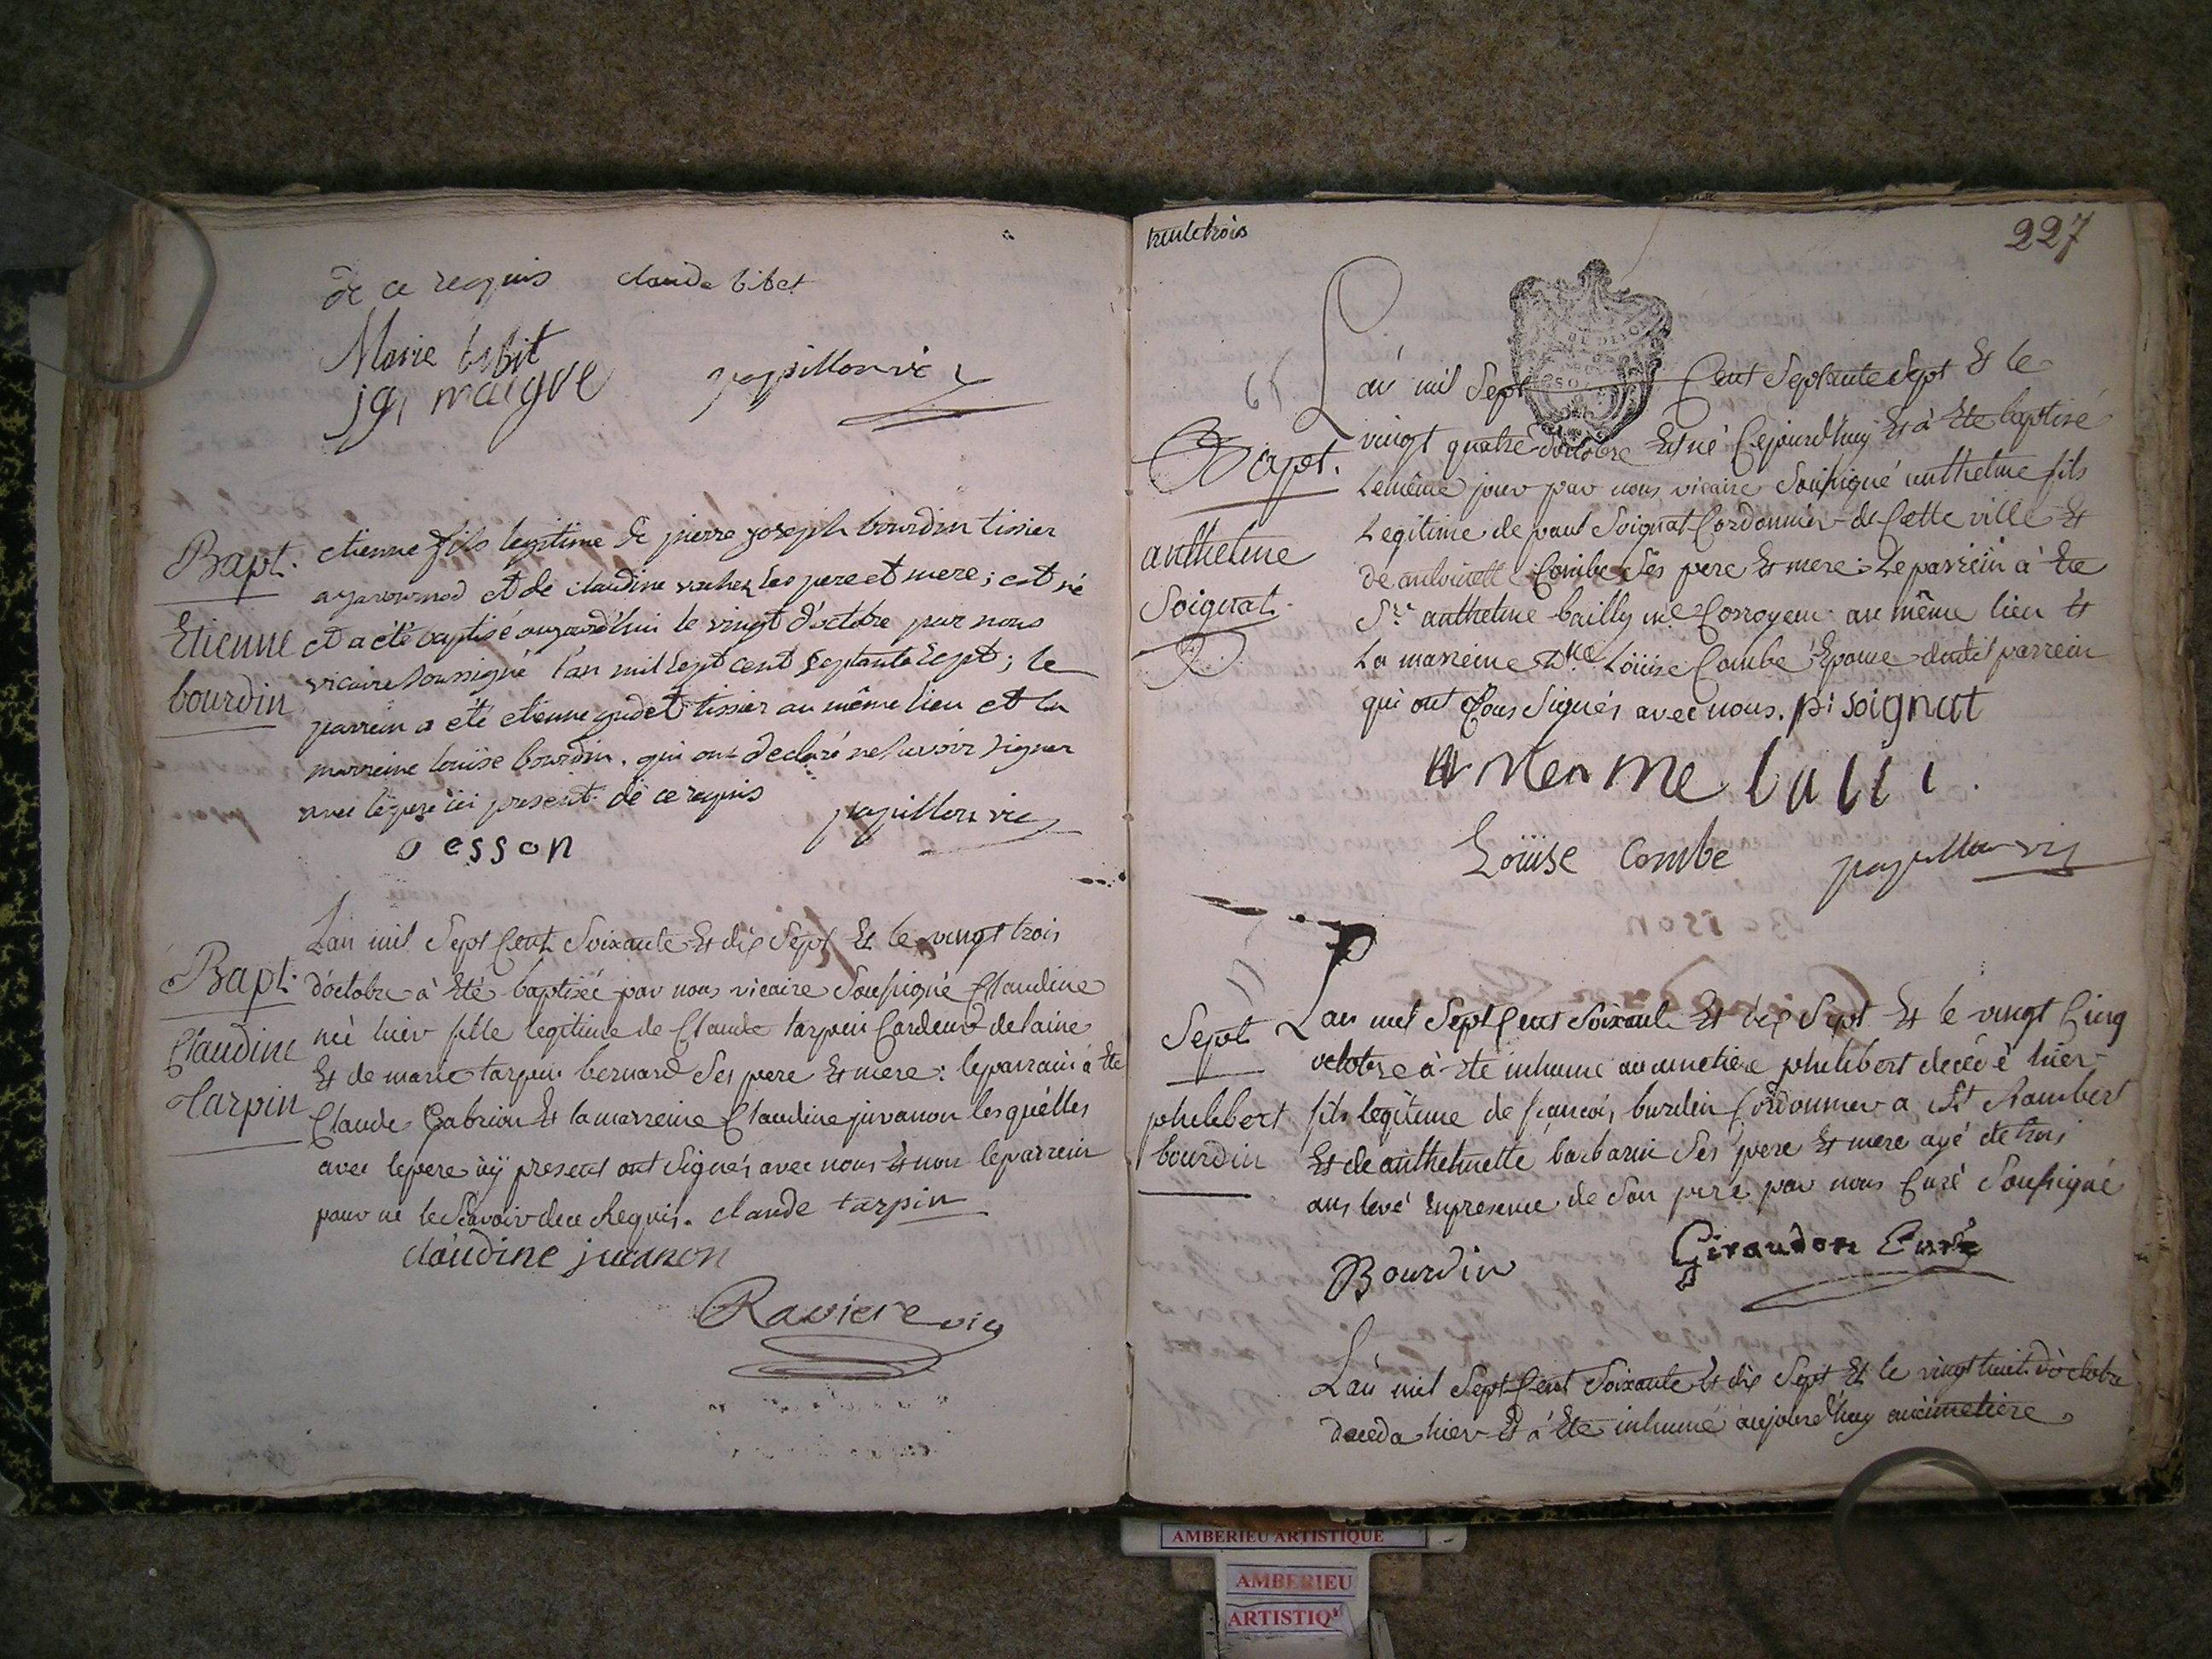 de ce requis claude tibet
Marie tibit
maigre papillon vic
Bapt. etienne fils legitime de pierre joseph bourdin tissier
et de claudine ses pere et mere ; est né
Etienne et a été baptisé aujourd'hui le vingt d'octobre par nous
vicaire soussigné l'an mil sept cent septante sept ; le
bourdin parrein a été etienne gudet tissier au même lieu et la
marreine louise bourdin . qui ont declaré ne savoir signer
avec le pere ici present de ce requis papillon vic
esson
Lan mil Sept Cent Soixante Et dix Sept Et le vingt trois
Bapt. d'octobre à Eté baptisée par nous vicaire Soussigné Claudine
Claudine née hier fille legitime de Claude tarpin Cardeur de laine
Et de marie tarpin bernard Ses pere Et mere : le parrain à Eté
tarpin Claude Gabrion Et la marreine Claudine juvanon lesquelles
avec le pere icy present ont Signés avec nous Et non le parrein
pour ne le Scavoir de ce Requis . claude tarpin
claudine juvanon
Raviere vic
trente trois
227
L'an mil Sept Cent Septante Sept Et le
Bapt. vingt quatre d'octobre Est né Cejourd'huy Et à Eté baptisé
Le même jour par nous vicaire Soussigné anthelme fils
anthelme Legitime de paul Soignat Cordonnier de Cette ville Et
Soignat de antoinette Combe Ses pere Et mere : Le parrein à Eté
Sr anthelme bailly me Corroyeur au même lieu Et
La marreine Dlle Loüise Combe Epouse dudit parrein
qui ont Tous Signés avec nous . pi soignat
Loüise Combe papillon vic
Lan mil Sept Cent Soixante Et dix Sept Et le vingt Cinq
Sept octobre à Eté inhumé au cimetiere philibert decédé hier
philibert fils legitime de françois burdin Cordonnier a St Rambert
bourdin Et de anthelmette barbarin Ses pere Et mere agé de trois
ans levé En presence de Son pere par nous Curé Soussigné
Bourdin Giraudon Curé
L'an mil Sept Cent Soixante Et dix Sept Et le vingt huit d'octobre
deceda hier Et à Eté inhumé aujourd'huy au cimetiere
AMBERIEU ARTISTIQUE
AMBERIEU
ARTISTIQ